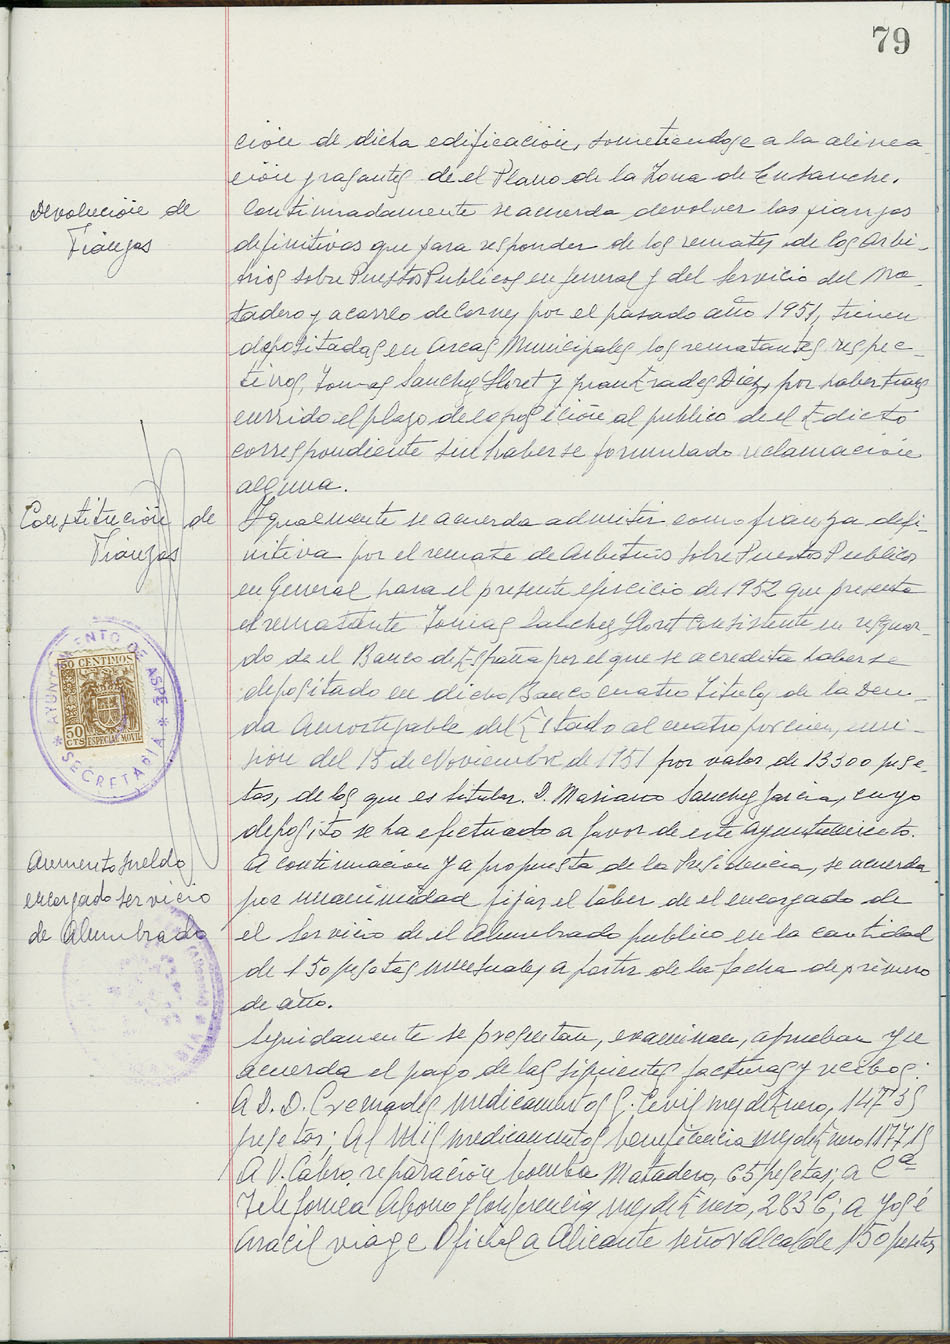 79
ción de dicha edificación, sometiendose a la alinea-
ción y rasantes de el Plano de la Zona de Ensanche.
Devolución de
Fianzas
Continuadamente se acuerda devolver las fianzas
definitivas que para responder de los remates de los Arbi-
trios sobre Puestos Publicos en general y del Servicio del Ma-
tadero y acarreo de Carnes por el pasado año 1951, tienen
depositadas en Arcas Municipales los rematantes respec-
tivos, Tomas Sanchez Lloret y Prades Diez, por haber trans
currido el plazo de exposición al publico de el Edicto
correspondiente sin haberse formulado reclamación
alguna.
Constitución de
Fianzas
Igualmente se acuerda admitir como fianza defi-
nitiva por el remate de Arbitrios sobre Puestos Publicos
en General para el presente ejercicio de 1952 que presenta
el rematante Tomas Sanchez Lloret consistente en resguar-
do de el Banco de España por el que se acredita haberse
depositado en dicho Banco cuatro Titulos de la Deu-
da Amortizable del Estado al cuatro por cien, emi-
sion del 15 de Noviembre de 1951 por valor de 13300 pese-
tas, de los que es titular D. Mariano Sanchez Garcia, cuyo
deposito se ha efectuado a favor de este Ayuntamiento.
AYUNTAMIENTO DE ASPE
SECRETARIA
50 CENTIMOS
50
CTS ESPECIAL MOVIL
Aumento sueldo
encargado servicio
de Alumbrado
A continuacion y a propuesta de la Presidencia, se acuerda
por unanimidad fijar el haber de el encargado de
el Servicio de el Alumbrado publico en la cantidad
de 150 pesetas mensuales a partir de la fecha de primero
de año.
Seguidamente se presentan, examinan, aprueban y se
acuerda el pago de las siguientes facturas y recibos:
A D. D. Cremades medicamentos G. Civil mes de Enero, 147'35
pesetas; Al mis medicamentos beneficencia mes de Enero
A V. Cabro, reparación bomba Matadero, 65 pesetas; a Cª
Telefonica Abono y Conferencias mes de Enero, a José
Gracil viage Oficial a Alicante señor Alcalde 150 pesetas